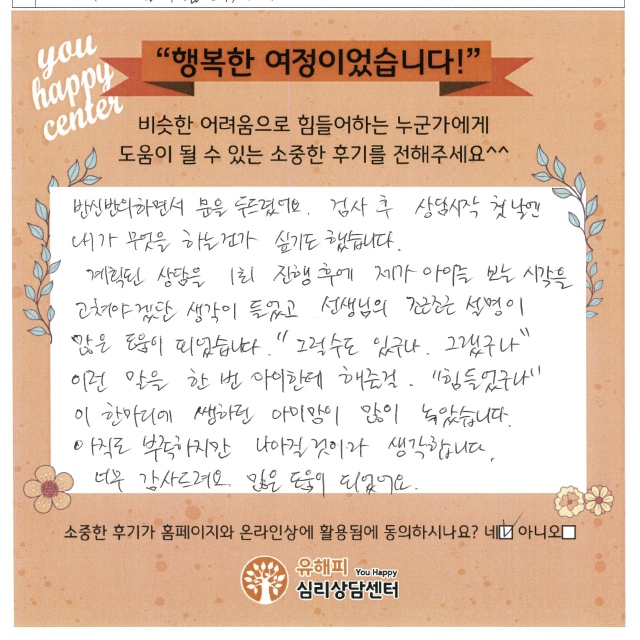 you
happy
center
“행복한 여정이었습니다!”
비슷한 어려움으로 힘들어하는 누군가에게
도움이 될 수 있는 소중한 후기를 전해주세요^^
반신반의하면서 문을 두드렸어요. 검사 후 상담시작 첫날엔
내가 무엇을 하는건가 싶기도 했습니다.
계획된 상담을 1회 진행 후에 제가 아이를 보는 시각을
고쳐야겠단 생각이 들었고 선생님의 조근조근 설명이
많은 도움이 되었습니다. "그럴수도 있구나. 그랬구나"
이런 말을 한 번 아이한테 해준걸. "힘들었구나"
이 한마디에 쌩하던 아이맘이 많이 녹았습니다.
아직도 부족하지만 나아질것이라 생각합니다.
너무 감사드려요. 많은 도움이 되었어요.
소중한 후기가 홈페이지와 온라인상에 활용됨에 동의하시나요? 네☑ 아니오☐
유해피 You Happy
심리상담센터